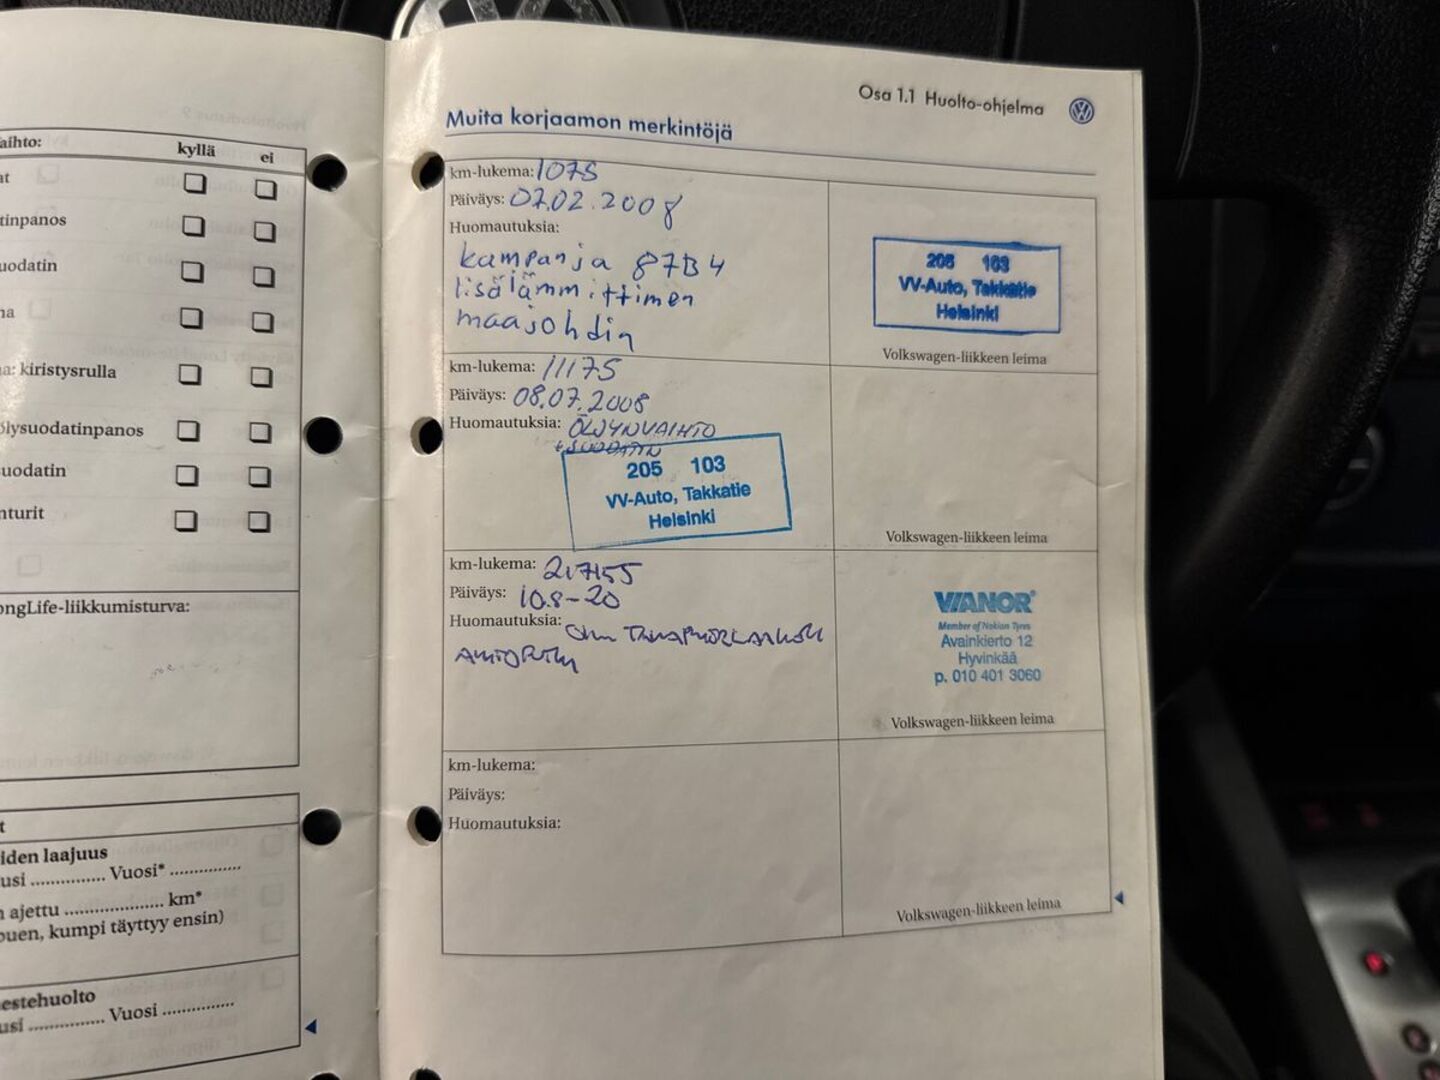 aihto:
kyllä ei
at
tinpanos
uodatin
na
a: kiristysrulla
ölysuodatinpanos
uodatin
nturit
ongLife-liikkumisturva:
t
iden laajuus
usi ............... Vuosi* ...............
n ajettu .................... km*
puen, kumpi täyttyy ensin)
estehuolto
usi ............... Vuosi ...............
Osa 1.1 Huolto-ohjelma
Muita korjaamon merkintöjä
km-lukema: 1075
Päiväys: 07.02.2008
Huomautuksia:
kampanja 87B4
lisälämmittimen
maajohdin
205 103
VV-Auto, Takkatie
Helsinki
Volkswagen-liikkeen leima
km-lukema: 11175
Päiväys: 08.07.2008
Huomautuksia: ÖLJYNVAIHTO
+SUODATIN
205 103
VV-Auto, Takkatie
Helsinki
Volkswagen-liikkeen leima
km-lukema: 217155
Päiväys: 10.8-20
Huomautuksia:
VIANOR
Member of Nokian Tyres
Avainkierto 12
Hyvinkää
p. 010 401 3060
Volkswagen-liikkeen leima
km-lukema:
Päiväys:
Huomautuksia:
Volkswagen-liikkeen leima